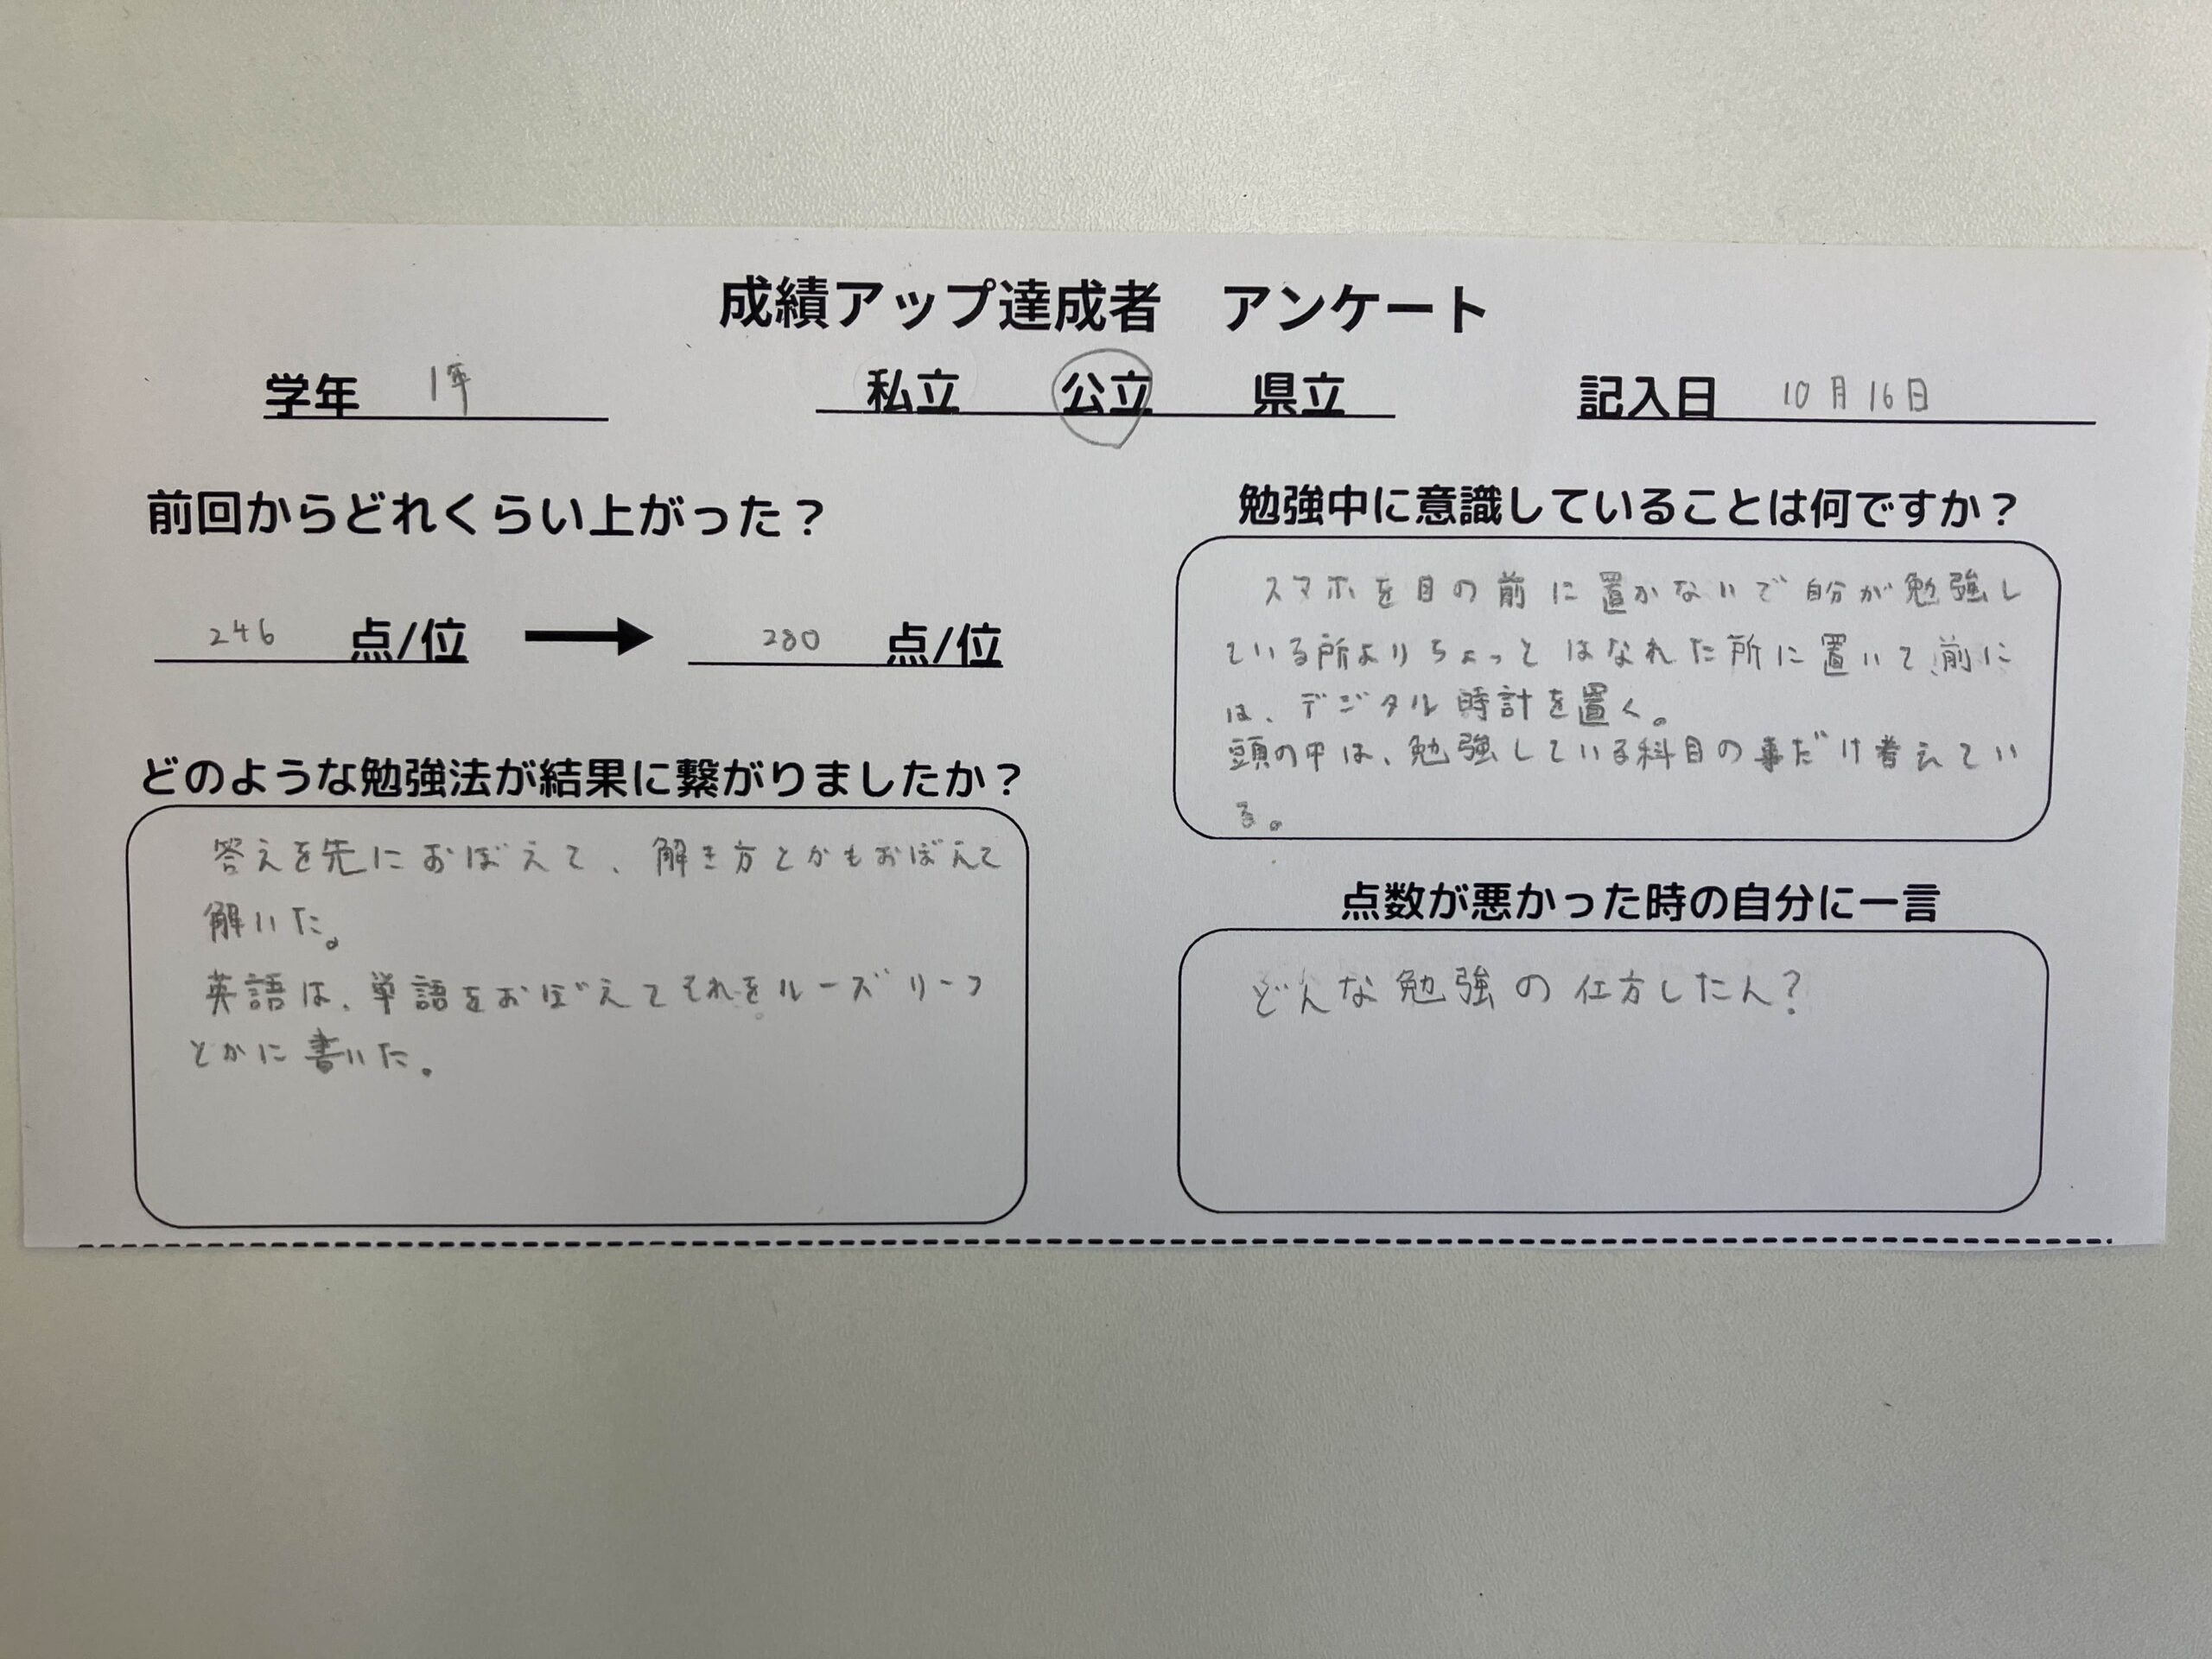 成績アップ達成者　アンケート
学年　1年　私立　公立　県立　記入日　10月16日
前回からどれくらい上がった？
246　点/位　→　280　点/位
どのような勉強法が結果に繋がりましたか？
答えを先におぼえて、解き方とかもおぼえて
解いた。
英語は、単語をおぼえてそれをルーズリーフ
とかに書いた。
勉強中に意識していることは何ですか？
スマホを目の前に置かないで自分が勉強し
ている所よりちょっとはなれた所に置いて、前に
は、デジタル時計を置く。
頭の中は、勉強している科目の事だけ考えてい
る。
点数が悪かった時の自分に一言
どんな勉強の仕方したん？